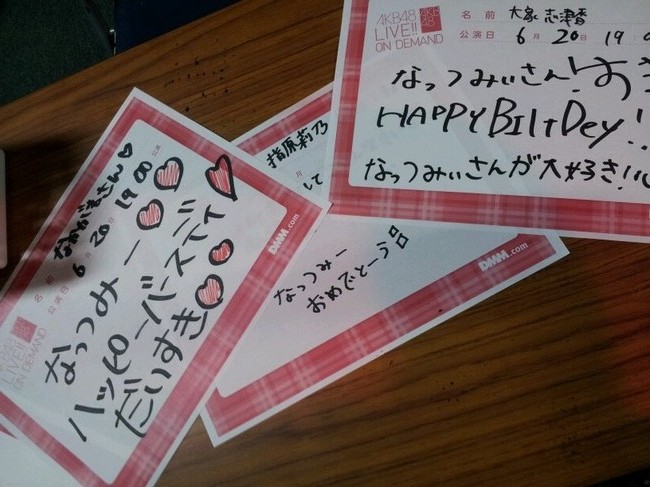 AKB48
LIVE!!
ON DEMAND
AKB
48
名前 大家 志津香
公演日 6月 20日 19:0
なっつみぃさん!お
HAPPY BIltDey!!
なっつみぃさんが大好き!!
DMM.com
指原莉乃
月
して
なっつみー
おめでとーう
DMM.com
AKB48
LIVE!!
ON DEMAND
名前
公演日 6月 20日 19:00 公演
なっつみー
ハッピーバースディ
だいすき
DMM.com